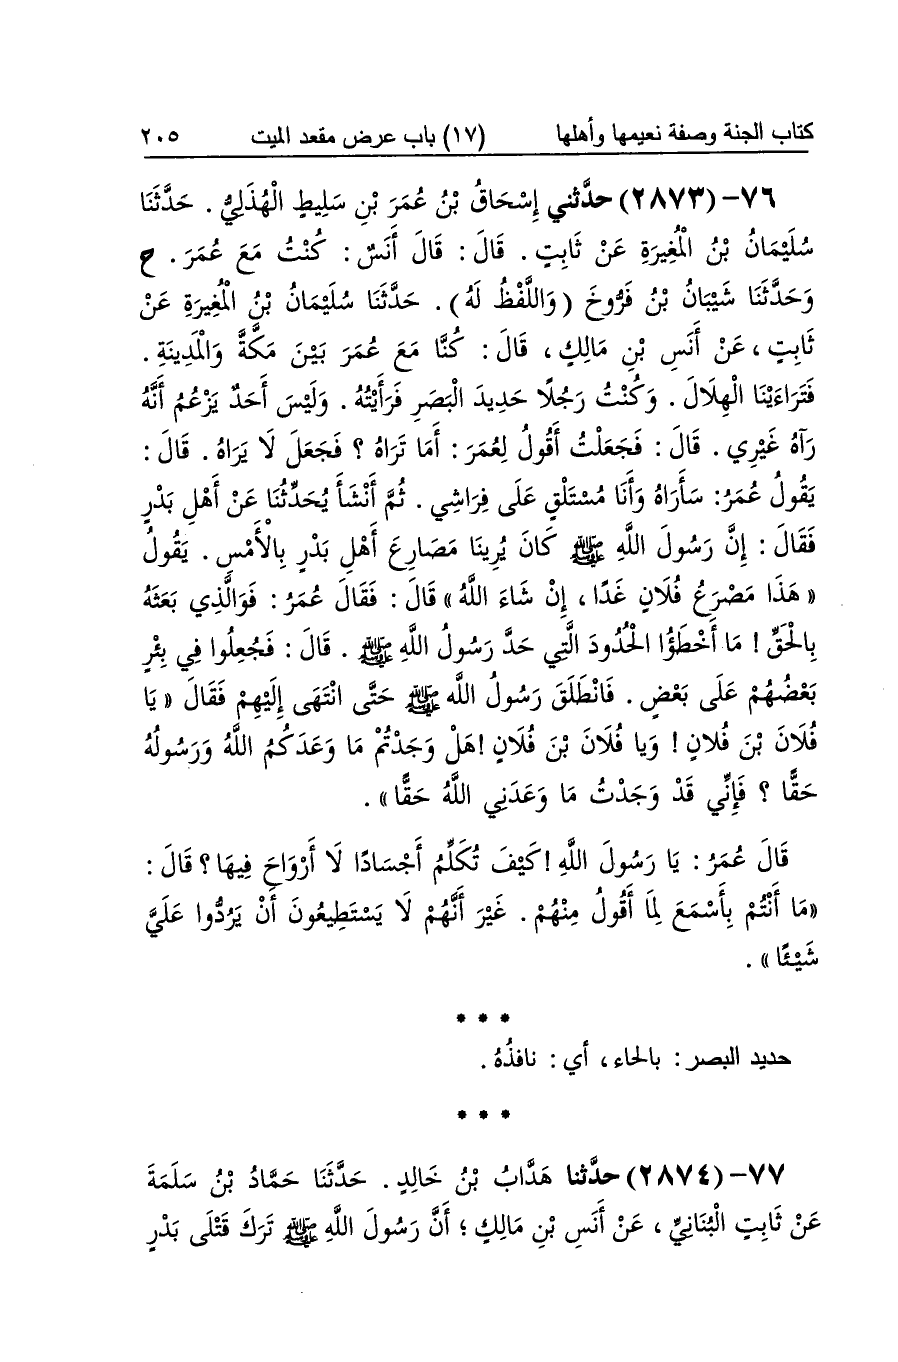 كتاب الجنة وصفة نعيمها وأهلها (١٧) باب عرض مقعد الميت ٢٠٥
٧٦- (٢٨٧٣) حدَّثني إِسْحَاقُ بْنُ عُمَرَ بْنِ سَلِيطٍ الْهُذَلِيُّ . حَدَّثَنَا
سُلَيْمَانُ بْنُ الْمُغِيرَةِ عَنْ ثَابِتٍ . قَالَ : قَالَ أَنَسٌ : كُنْتُ مَعَ عُمَرَ . ح
وَحَدَّثَنَا شَيْبَانُ بْنُ فَرُّوخَ ( وَاللَّفْظُ لَهُ ) . حَدَّثَنَا سُلَيْمَانُ بْنُ الْمُغِيرَةِ عَنْ
ثَابِتٍ ، عَنْ أَنَسِ بْنِ مَالِكٍ ، قَالَ : كُنَّا مَعَ عُمَرَ بَيْنَ مَكَّةَ وَالْمَدِينَةِ .
فَتَرَاءَيْنَا الْهِلَالَ . وَكُنْتُ رَجُلًا حَدِيدَ الْبَصَرِ فَرَأَيْتُهُ . وَلَيْسَ أَحَدٌ يَزْعُمُ أَنَّهُ
رَآهُ غَيْرِي . قَالَ : فَجَعَلْتُ أَقُولُ لِعُمَرَ : أَمَا تَرَاهُ ؟ فَجَعَلَ لَا يَرَاهُ . قَالَ :
يَقُولُ عُمَرُ: سَأَرَاهُ وَأَنَا مُسْتَلْقٍ عَلَى فِرَاشِي . ثُمَّ أَنْشَأَ يُحَدِّثُنَا عَنْ أَهْلِ بَدْرٍ
فَقَالَ : إِنَّ رَسُولَ اللَّهِ ﷺ كَانَ يُرِينَا مَصَارِعَ أَهْلِ بَدْرٍ بِالْأَمْسِ . يَقُولُ
« هَذَا مَصْرَعُ فُلَانٍ غَدًا ، إِنْ شَاءَ اللَّهُ » قَالَ : فَقَالَ عُمَرُ : فَوَالَّذِي بَعَثَهُ
بِالْحَقِّ ! مَا أَخْطَؤُا الْحُدُودَ الَّتِي حَدَّ رَسُولُ اللَّهِ ﷺ . قَالَ : فَجُعِلُوا فِي بِئْرٍ
بَعْضُهُمْ عَلَى بَعْضٍ . فَانْطَلَقَ رَسُولُ اللَّه ﷺ حَتَّى انْتَهَى إِلَيْهِمْ فَقَالَ « يَا
فُلَانَ بْنَ فُلانٍ ! وَيا فُلَانَ بْنَ فُلَانٍ !هَلْ وَجَدْتُمْ مَا وَعَدَكُمُ اللَّهُ وَرَسُولُهُ
حَقًّا ؟ فَإِنِّي قَدْ وَجَدْتُ مَا وَعَدَنِي اللَّهُ حَقًّا» .
قَالَ عُمَرُ : يَا رَسُولَ اللَّهِ !كَيْفَ تُكَلِّمُ أَجْسَادًا لَا أَرْوَاحَ فِيهَا ؟ قَالَ :
«مَا أَنْتُمْ بِأَسْمَعَ لِمَا أَقُولُ مِنْهُمْ . غَيْرَ أَنَّهُمْ لَا يَسْتَطِيعُونَ أَنْ يَرُدُّوا عَلَيَّ
شَيْئًا » .
* * *
حديد البصر : بالحاء ، أي : نافذُهُ .
* * *
٧٧- (٢٨٧٤) حدَّثنا هَدَّابُ بْنُ خَالِدٍ . حَدَّثَنَا حَمَّادُ بْنُ سَلَمَةَ
عَنْ ثَابِتٍ الْبُنَانِيِّ ، عَنْ أَنَسِ بْنِ مَالِكٍ ؛ أَنَّ رَسُولَ اللَّهِ ﷺ تَرَكَ قَتْلَى بَدْرٍ